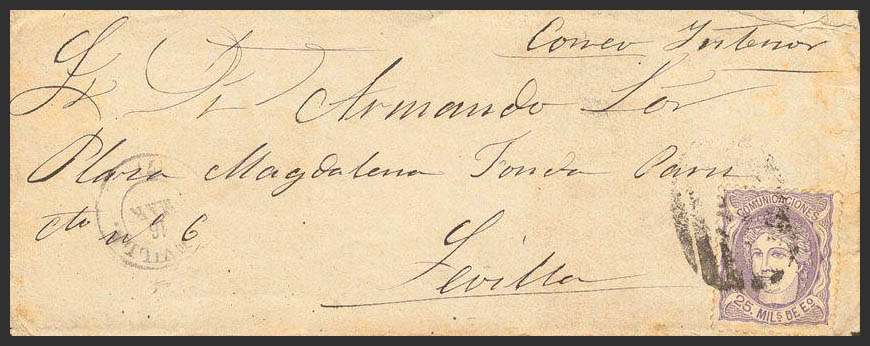 Correo Interior
Sr Dn Armando Lor
Plaza Magdalena Fonda Paris
cto nº 6
Sevilla
16
MAR
COMUNICACIONES
25 MILS DE Eo